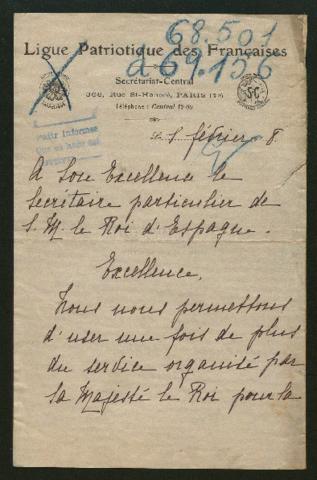 68.501
a 69.156
Ligue Patriotique des Françaises
Secrétariat-Central
368, Rue St-Honoré, PARIS (1er)
Téléphone: Central
février 8.
A Son Excellence le
Secrétaire particulier de
S. M. le Roi d'Espagne.
Excellence,
Nous nous permettons
d'user une fois de plus
du service organisé par
Sa Majesté le Roi pour la